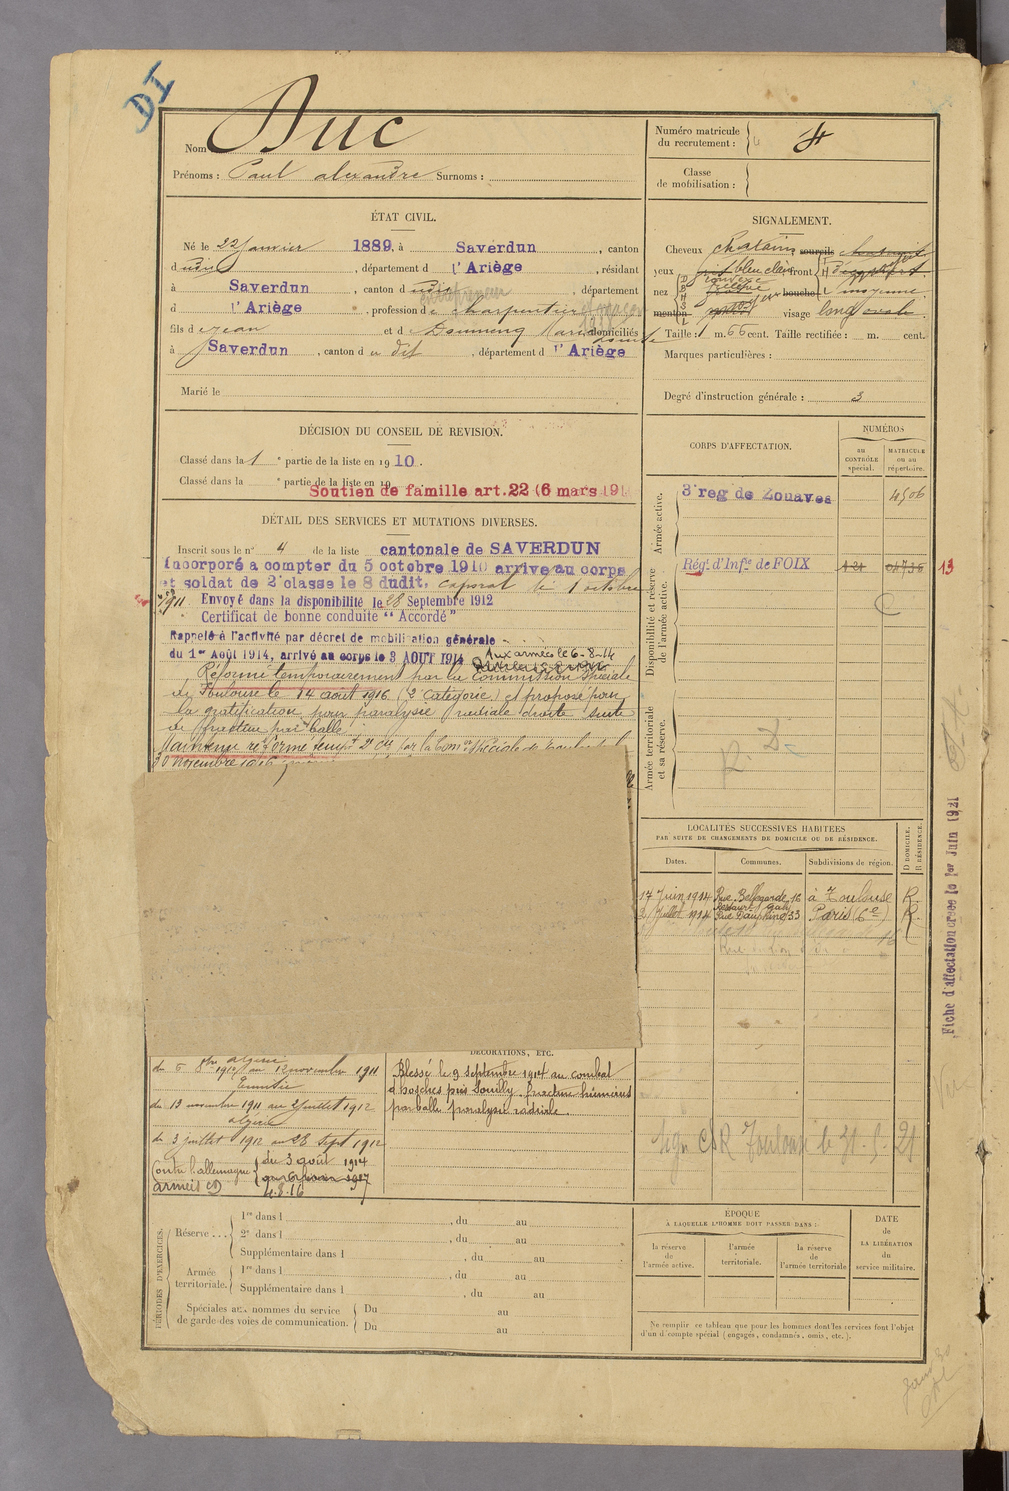 DI
Nom Duc
Prénoms : Paul alexandre Surnoms :
Numéro matricule du recrutement : 4
Classe de mobilisation :
ÉTAT CIVIL.
Né le 22 Janvier 1889, à Saverdun, canton
d udit, département d l'Ariège, résidant
à Saverdun, canton d udit, département
d l'Ariège, profession de charpentier
fils de jean et d Domineng Marie domiciliés
à Saverdun, canton d u dit, département d l'Ariège
Marié le
SIGNALEMENT.
Cheveux chatains sourcils
yeux bleu clair front
nez bouche moyenne
menton visage long ovale
Taille : 1 m. 66 cent. Taille rectifiée : m. cent.
Marques particulières :
Degré d'instruction générale : 3
DÉCISION DU CONSEIL DE REVISION.
Classé dans la 1e partie de la liste en 1910.
Classé dans la e partie de la liste en 19
Soutien de famille art. 22 (6 mars 191
DÉTAIL DES SERVICES ET MUTATIONS DIVERSES.
Inscrit sous le n° 4 de la liste cantonale de SAVERDUN
Incorporé a compter du 5 octobre 1910 arrivé au corps
et soldat de 2e classe le 8 dudit. caporal le 1 octobre
1911 Envoyé dans la disponibilité le 28 Septembre 1912
Certificat de bonne conduite "Accordé"
Rappelé à l'activité par décret de mobilisation générale
du 1er Août 1914, arrivé au corps le 3 AOUT 1914 Aux armées le 6-8-14
Réformé temporairement par la Commission Spéciale
de Toulouse le 14 août 1916 (2e catégorie) et proposé pour
la gratification pour paralysie radiale droite suite
de fracture par balle
Maintenu réformé tempre 2e cie par la Comon spéciale de Toulouse le
30 novembre 1916
CORPS D'AFFECTATION.
NUMÉROS
au CONTRÔLE spécial.
MATRICULE ou au répertoire.
Armée active.
3e reg de Zouaves 4506
Disponibilité et réserve de l'armée active.
Régt d'Infie de FOIX 13
C
Armée territoriale et sa réserve.
R. D
LOCALITÉS SUCCESSIVES HABITÉES
PAR SUITE DE CHANGEMENTS DE DOMICILE OU DE RÉSIDENCE.
Dates. Communes. Subdivisions de région. D DOMICILE. R RÉSIDENCE.
17 Juin 1914 Rue Bellegarde 16 à Toulouse R.
2 Juillet 1914 Rue Dauphine 33 Paris (6e) R.
Fiche d'affectation créée le 1er Juin 1921
algérie
du 6 8bre 1910 au 12 novembre 1911
Tunisie
du 13 novembre 1911 au 2 juillet 1912
algérie
du 3 juillet 1912 au 28 Sept 1912
Contre l'allemagne du 3 août 1914
armées
DÉCORATIONS, ETC.
Blessé le 9 septembre 1914 au combat
d bosches près Souilly. fracture humérus
par balle paralysie radiale.
Sign CSR Toulouse le 31-5-21
PÉRIODES D'EXERCICES.
Réserve ...
1re dans l , du au
2e dans l , du au
Supplémentaire dans l , du au
Armée territoriale.
1re dans l , du au
Supplémentaire dans l , du au
Spéciales aux hommes du service de garde des voies de communication.
Du au
Du au
ÉPOQUE
À LAQUELLE L'HOMME DOIT PASSER DANS :
la réserve de l'armée active.
l'armée territoriale.
la réserve de l'armée territoriale
DATE de LA LIBÉRATION du service militaire.
Ne remplir ce tableau que pour les hommes dont les services font l'objet
d'un décompte spécial (engagés, condamnés, omis, etc.).